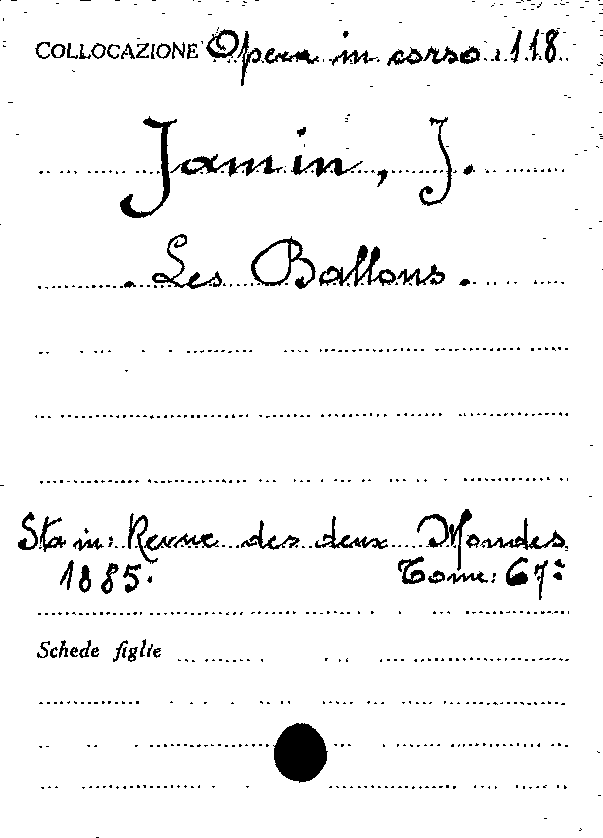 COLLOCAZIONE Opera in corso . 118
Jamin, J.
. Les Ballons .
Sta in: Revue des deux Mondes,
1885. Tome: 67:
Schede figlie